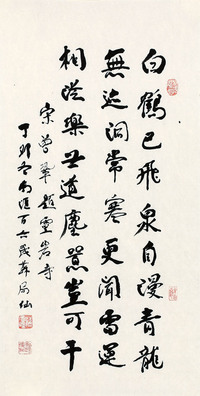 白鶴已飛泉自漫青龍
無迹洞常寒更聞雷遠
相從樂世道塵囂豈可干
宋曾鞏題靈岩寺
丁卯冬南匯百六歲蘇局仙